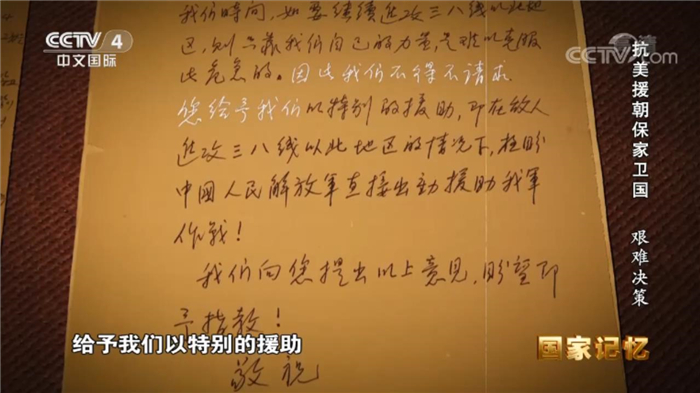 CCTV 4
中文国际
CCTV.com
高清
抗美援朝保家卫国 艰难决策
我们时间,如要继续进攻三八线以北地
区,则只靠我们自己的力量,是难以克服
此危急的。因此我们不得不请求
您给予我们以特别的援助,即在敌人
进攻三八线以北地区的情况下,极盼
中國人民解放军直接出動援助我軍
作战!
我们向您提出以上意見,盼望即
予指教!
敬祝
给予我们以特别的援助
国家记忆